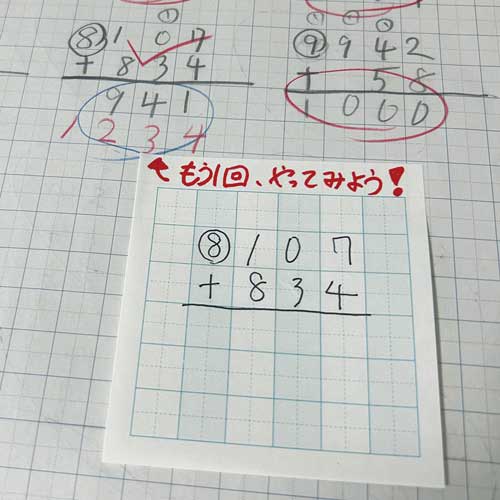 ① 
⑧ 1 0 7
+ 8 3 4
9 4 1
1 2 3 4
① ① ①
⑨ 9 4 2
+ 5 8
1 0 0 0
↖もう1回、やってみよう!
⑧ 1 0 7
+ 8 3 4